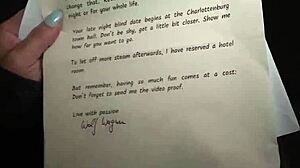 change that. 
night or for your whole life.
Your late night blind date begins at the Charlottenburg
town hall. Don't be shy, get a little bit closer. Show me
how far you want to go.
To let off more steam afterwards, I have reserved a hotel
room.
But remember, having so much fun comes at a cost:
Don't forget to send me the video proof.
Live with passion
Wolf Wagner